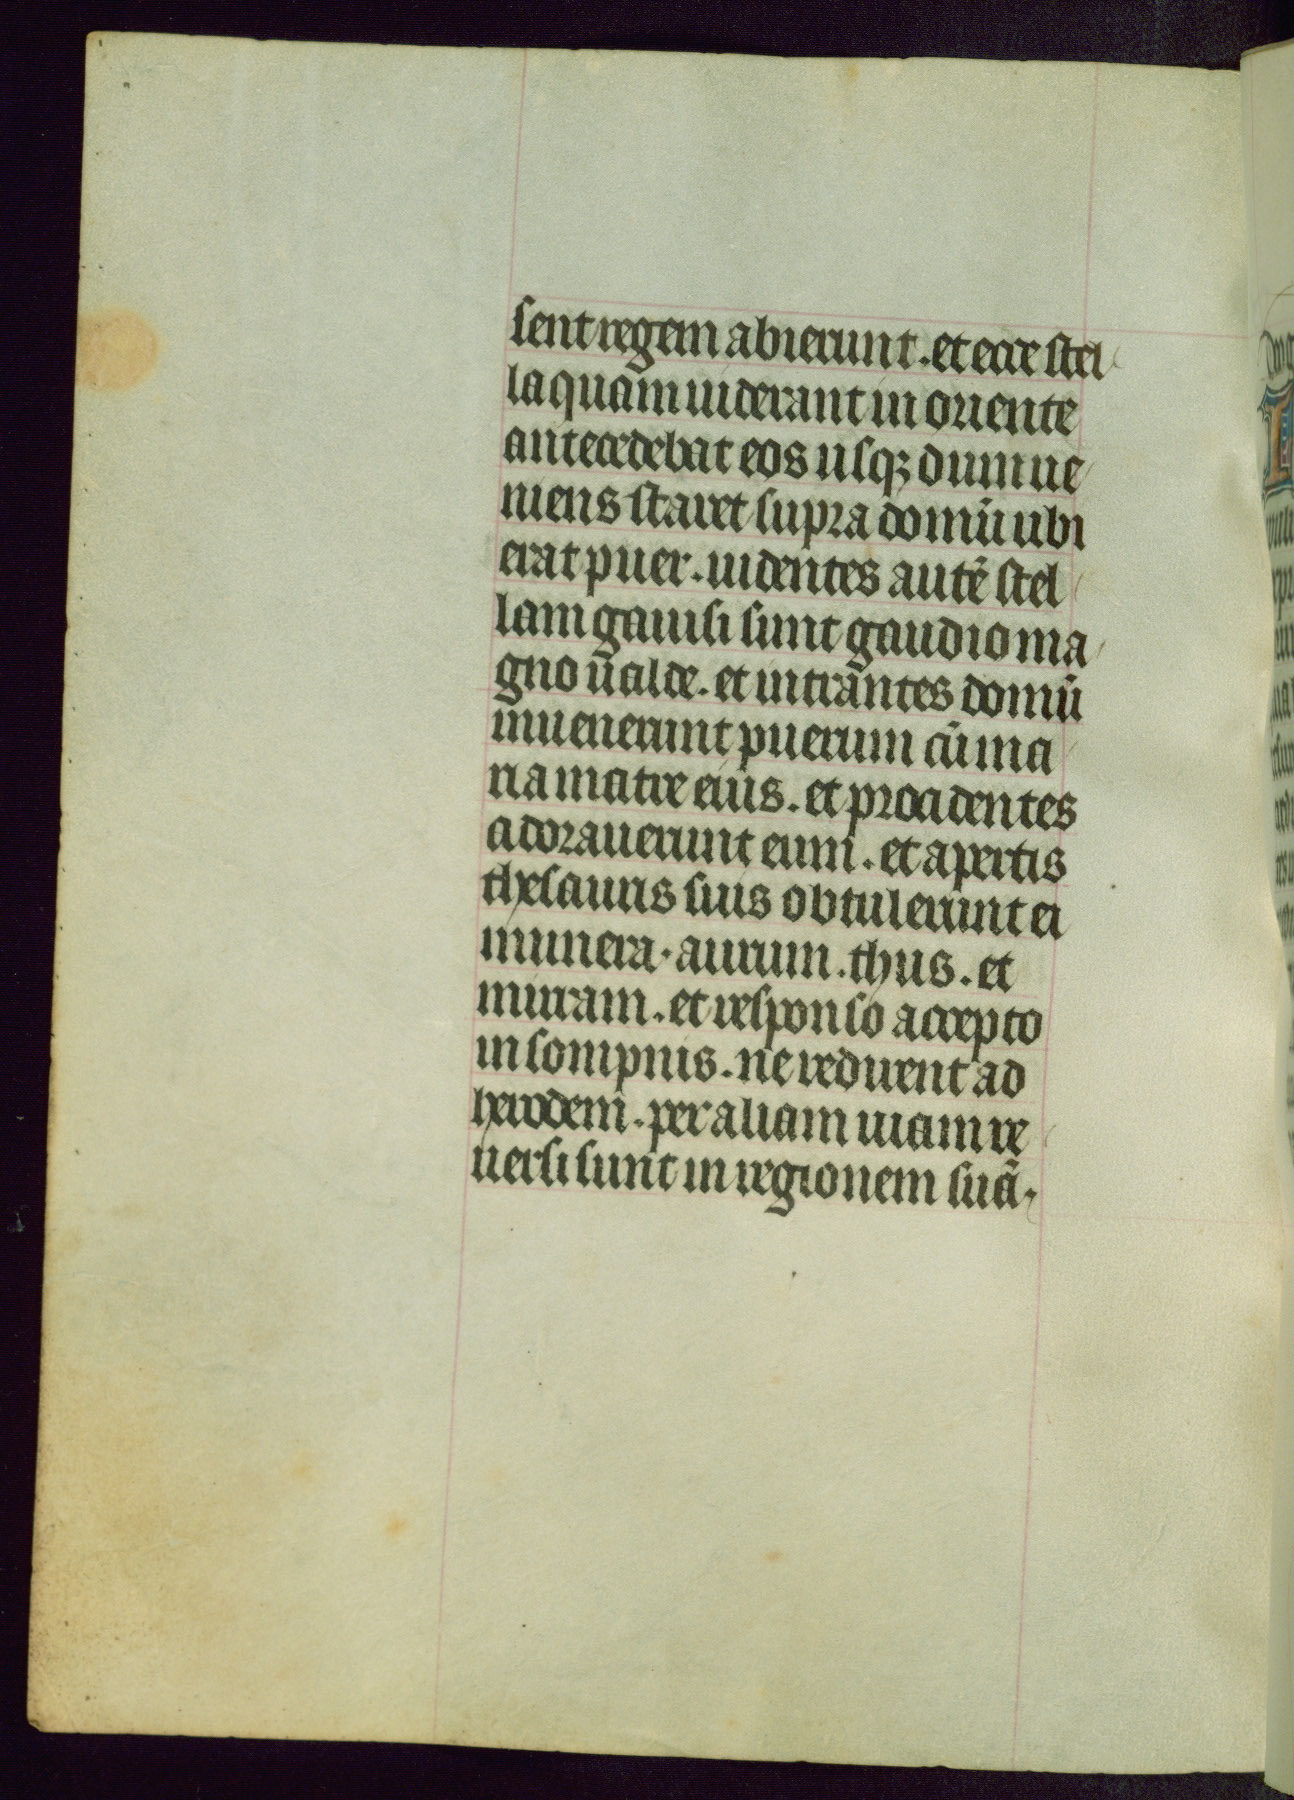 sent regem abierunt. et ecce stel
la quam uiderant in oriente
antecedebat eos usqꝫ dum ue
niens staret supra domū ubi
erat puer. uidentes autē stel
lam gauisi sunt gaudio ma
gno ualde. et intrantes domū
inuenerunt puerum cū ma
ria matre eius. et procidentes
adorauerunt eum. et apertis
thesauris suis obtulerunt ei
munera. aurum. thus. et
mirram. et responso accepto
in sompnis. ne redirent ad
herodem. per aliam uiam re
uersi sunt in regionem suā.